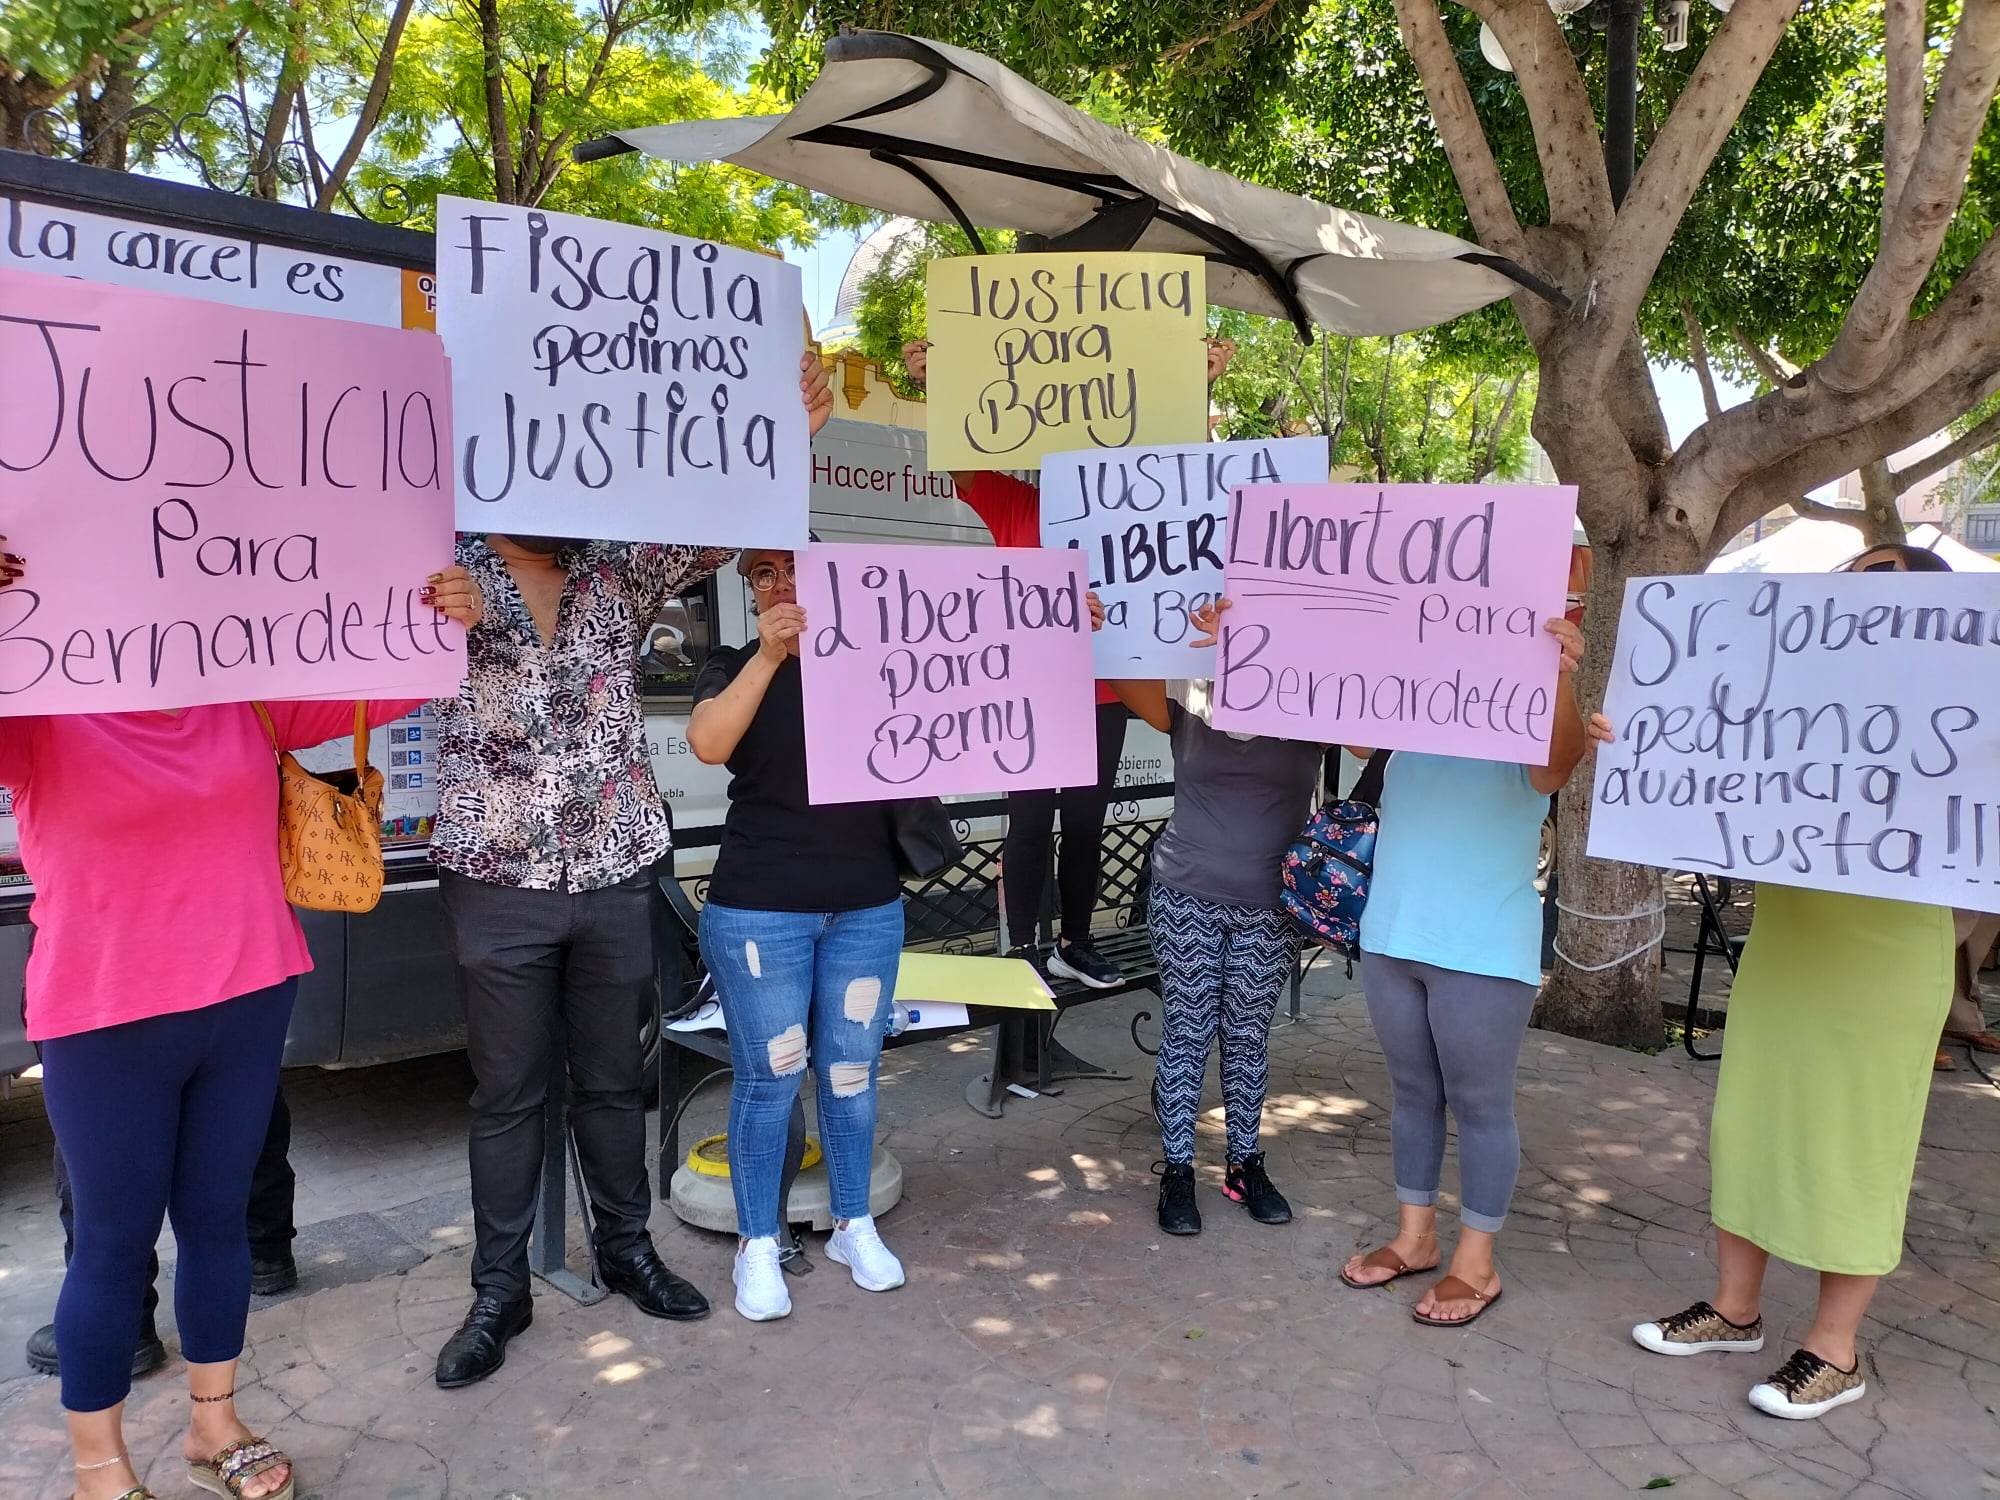 la carcel es
Justicia
Para
Bernardette
Fiscalia
pedimos
Justicia
Justicia
para
Berny
Hacer futu
JUSTICA
LIBERT
Libertad
para
Berny
Libertad
para
Bernardette
Sr. gobernad
pedimos
audiencia
Justa!!!
obierno
Puebla
uebla